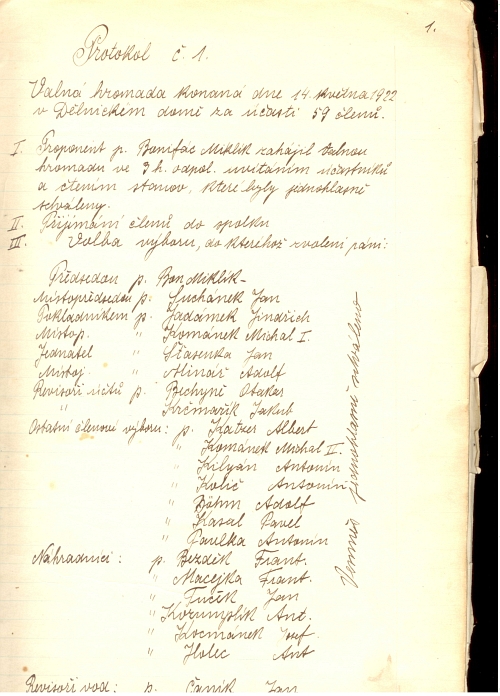 1.
Protokol č. 1.
Valná hromada konaná dne 14. května 1922
v Dělnickém domě za účasti 59 členů.
I. Proponent p. Bonifác Miklík zahájil valnou
hromadu ve 3 h. odpol. uvítáním účastníků
a čtením stanov, které byly jednohlasně
schváleny.
II. Přijímání členů do spolku
III. Volba výboru, do kteréhož zvoleni páni:
Předsedou p. Bon. Miklík –
Místopředsedou p. Suchánek Jan
Pokladníkem p. Jadámek Jindřich
Místop. " Kománek Michal I.
Jednatel " Stasenka Jan
Místoj. " Mlinář Adolf
Revisoři účtů p. Bechyně Otakar
" Krčmařík Jakub
Ostatní členové výboru: p. Katzer Albert
" Kománek Michal II.
" Kilyán Antonín
" Količ Antonín
" Böhm Adolf
" Kasal Pavel
" Pavelka Antonín
Náhradníci: p. Bezděk Frant.
" Macejka Frant.
" Fuček Jan
" Kozumplík Ant.
" Kocmánek Josef.
" Holec Ant
Revisoři vod: p. Čaník Jan
jednohlasně schváleno